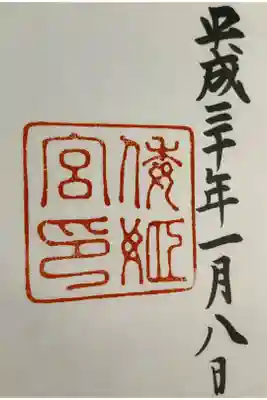 平成三十年一月八日
倭姫
宮印